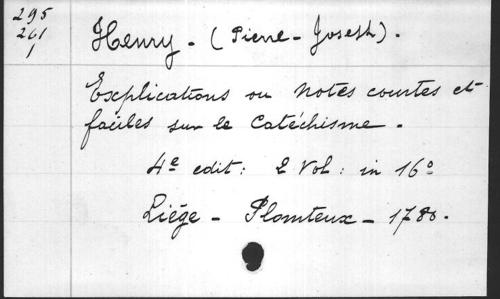 295
261
1
Henry - (Pierre - Joseph).
Explications ou notes courtes et
faciles sur le Catéchisme.
4e edit: 2 Vol: in 16o
Liége - Plomteux - 1780.